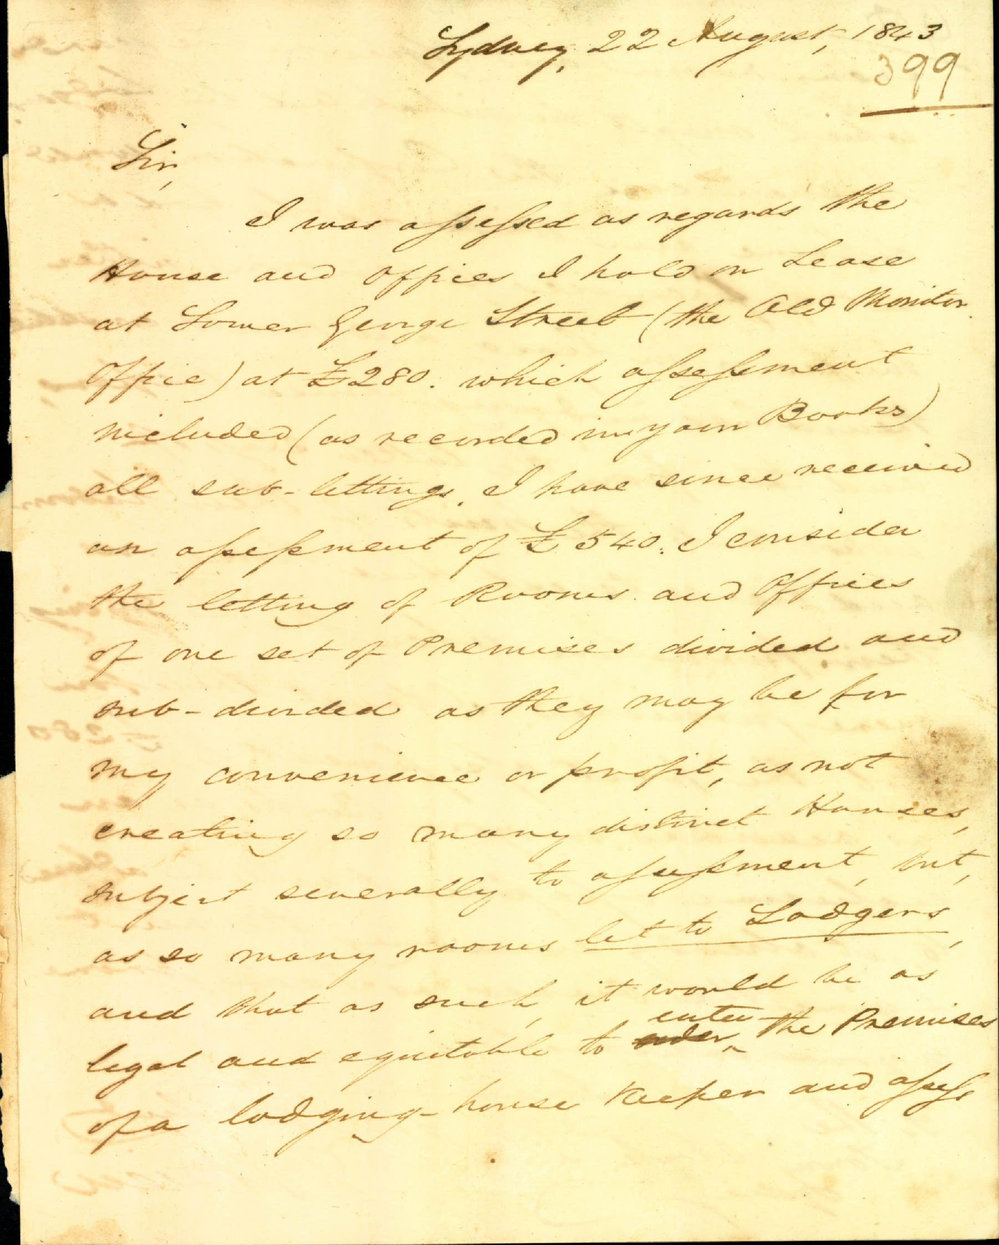 Sydney, 22 August, 1843
399
Sir,
I was assessed as regards the
House and Offices I hold on Lease
at Lower George Street (the Old Monitor
Office) at £280. which assessment
included (as recorded in your Books)
all sub-lettings. I have since received
an assessment of £540. I consider
the letting of Rooms and Offices
of one set of Premises divided and
sub-divided as they may be for
my convenience or profit, as not
creating so many distinct Houses,
subject severally to assessment, but,
as so many rooms let to Lodgers,
and that as such, it would be as
legal and equitable to enter the Premises
of a lodging-house keeper and assess